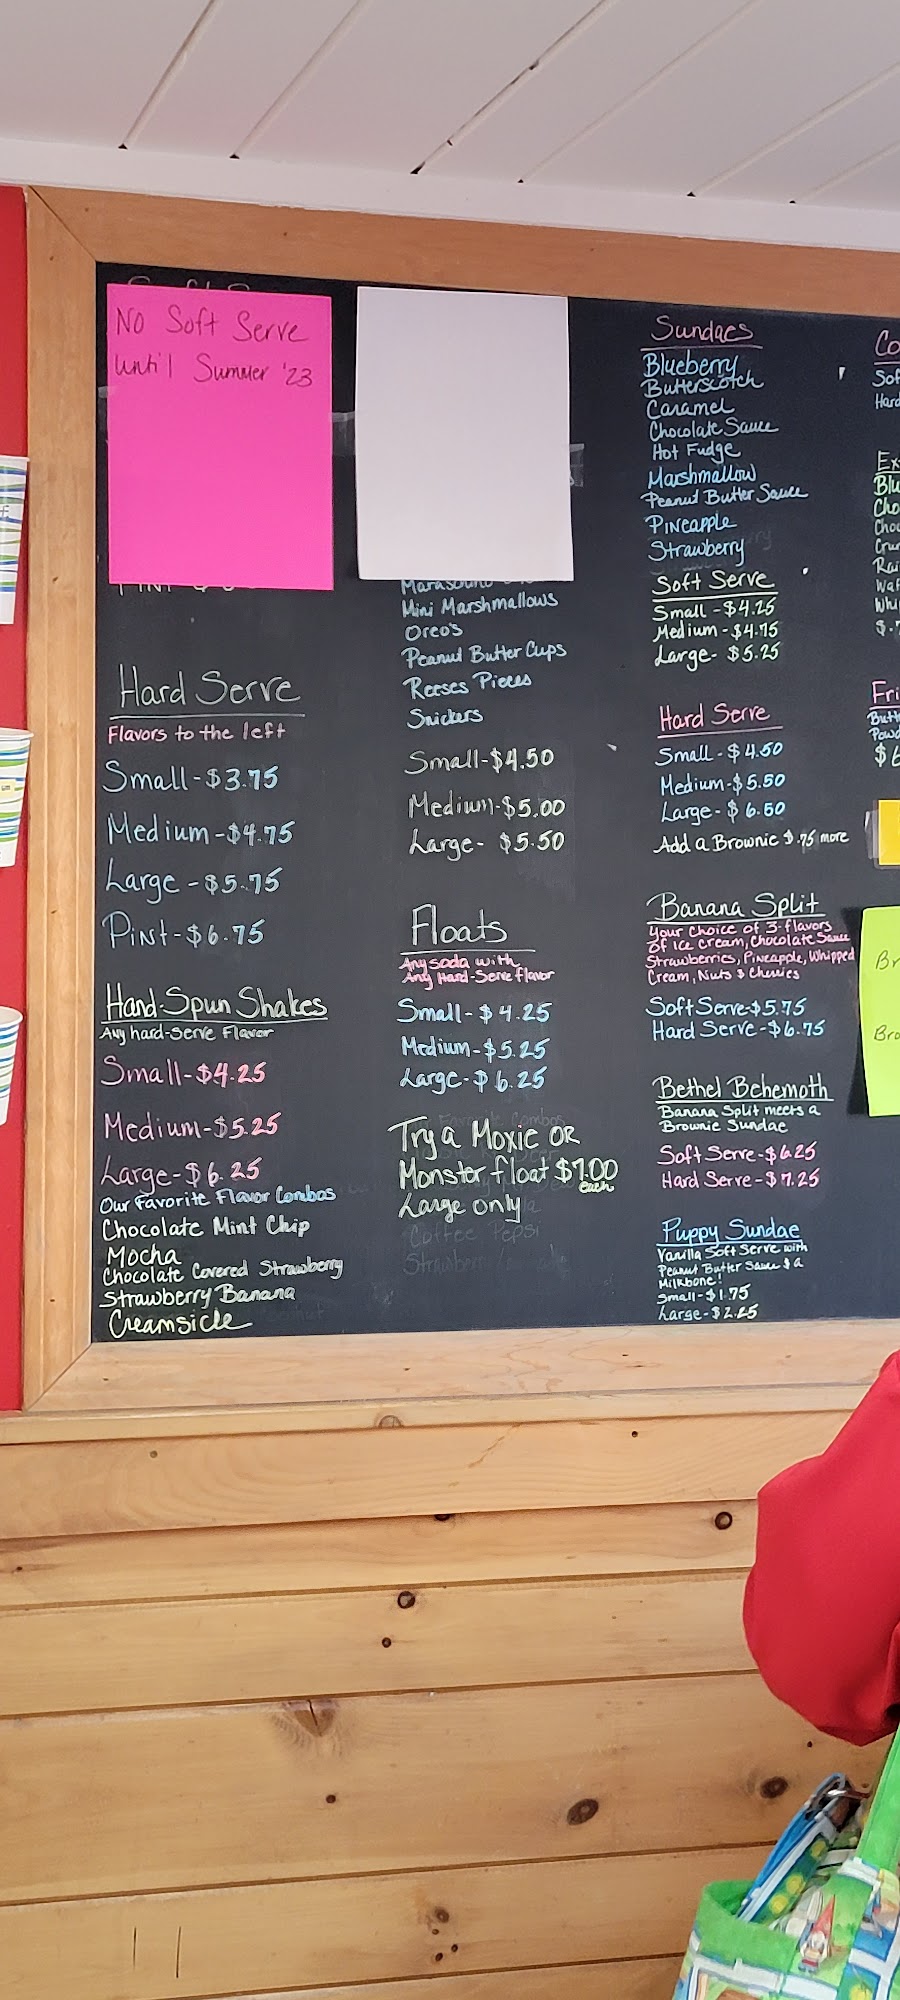 No Soft Serve
until Summer '23
Hard Serve
Flavors to the left
Small - $3.75
Medium - $4.75
Large - $5.75
Pint - $6.75
Hand-Spun Shakes
Any hard-serve Flavor
Small - $4.25
Medium - $5.25
Large - $6.25
Our Favorite Flavor Combos
Chocolate Mint Chip
Mocha
Chocolate Covered Strawberry
Strawberry Banana
Creamsicle
Mini Marshmallows
Oreo's
Peanut Butter Cups
Reeses Pieces
Snickers
Small - $4.50
Medium - $5.00
Large - $5.50
Floats
Any soda with
Any Hard-Serve flavor
Small - $4.25
Medium - $5.25
Large - $6.25
Try a Moxie OR
Monster float $7.00
each
Large only
Coffee Pepsi
Sundaes
Blueberry
Butterscotch
Caramel
Chocolate Sauce
Hot Fudge
Marshmallow
Peanut Butter Sauce
Pineapple
Strawberry
Soft Serve
Small - $4.25
Medium - $4.75
Large - $5.25
Hard Serve
Small - $4.50
Medium - $5.50
Large - $6.50
Add a Brownie $.75 more
Banana Split
Your choice of 3-flavors
of ice cream, Chocolate Sauce
Strawberries, Pineapple, Whipped
Cream, Nuts & Cherries
Soft Serve - $5.75
Hard Serve - $6.75
Bethel Behemoth
Banana Split meets a
Brownie Sundae
Soft Serve - $6.25
Hard Serve - $7.25
Puppy Sundae
Vanilla Soft Serve with
Peanut Butter Sauce & a
Milkbone!
Small - $1.75
Large - $2.25